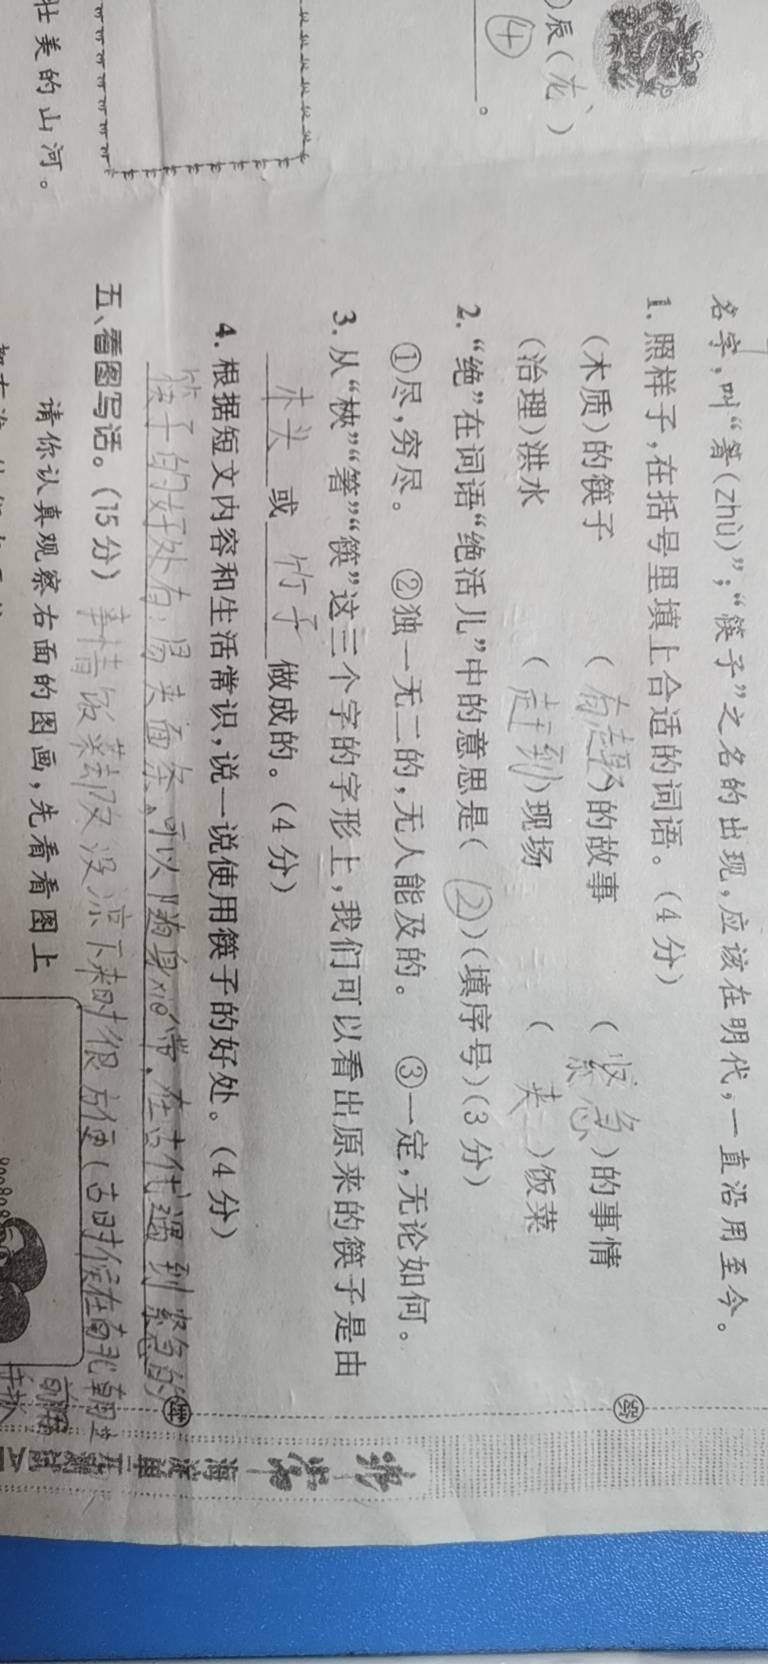 )辰(龙)
④
。
壮美的山河。
名字,叫“箸(zhù)”;“筷子”之名的出现,应该在明代,一直沿用至今。
1. 照样子,在括号里填上合适的词语。(4分)
(木质)的筷子 (有趣)的故事 (紧急)的事情
(治理)洪水 (赶到)现场 (夹)饭菜
2. “绝”在词语“绝活儿”中的意思是(②)(填序号)(3分)
①尽,穷尽。 ②独一无二的,无人能及的。 ③一定,无论如何。
3. 从“梜”“箸”“筷”这三个字的字形上,我们可以看出原来的筷子是由
木头或竹子做成的。(4分)
4. 根据短文内容和生活常识,说一说使用筷子的好处。(4分)
筷子的好处有:易夹面条,可以随身携带,在古代遇到紧急的
事情饭菜却又没凉下来时很方便(古时候在南北朝
五、看图写话。(15分)
请你认真观察右面的图画,先看看图上
密